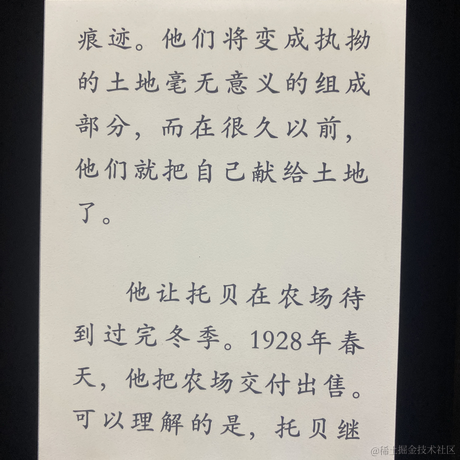 痕迹。他们将变成执拗
的土地毫无意义的组成
部分，而在很久以前，
他们就把自己献给土地
了。
他让托贝在农场待
到过完冬季。1928年春
天，他把农场交付出售。
可以理解的是，托贝继
@稀土掘金技术社区